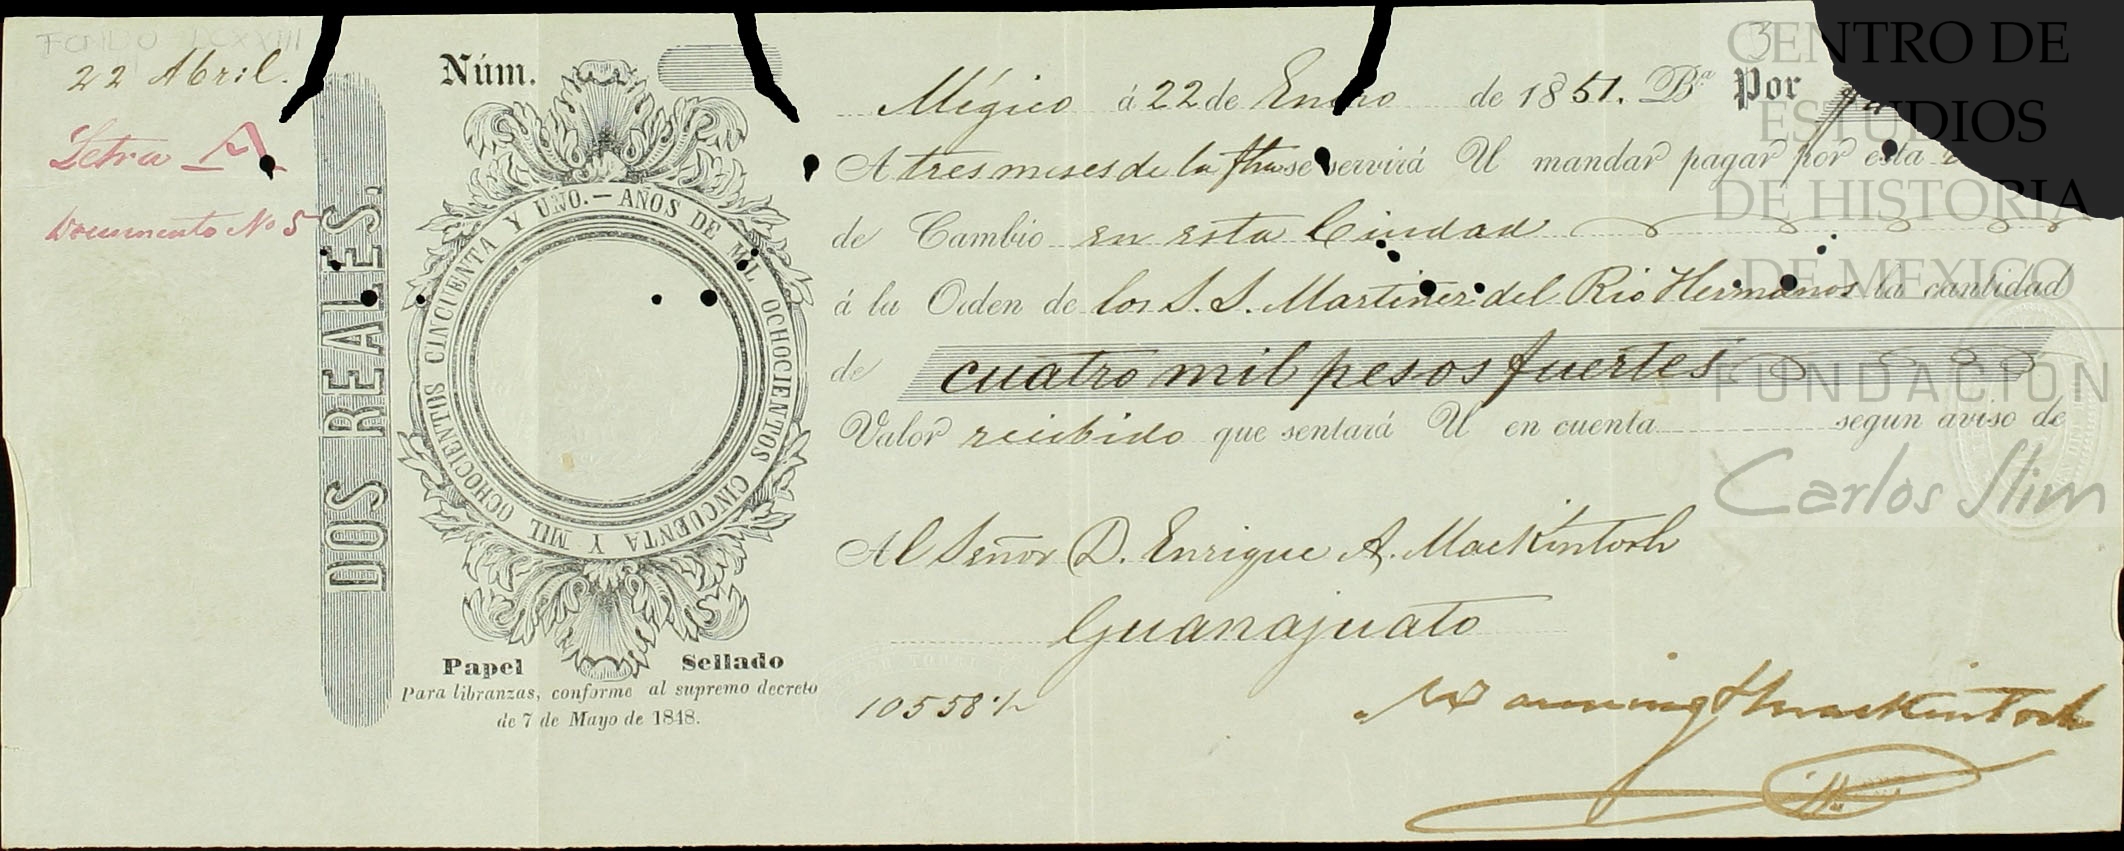 FONDO DCXXIII
22 Abril.
Letra A
Documento No 5
DOS REALES.
Núm.
AÑOS DE MIL OCHOCIENTOS CINCUENTA Y MIL OCHOCIENTOS CINCUENTA Y UNO.—
Papel Sellado
Para libranzas, conforme al supremo decreto
de 7 de Mayo de 1848.
3
Mégico á 22 de Enero de 1851. Ba Por
A tres meses de la fha se servirá U mandar pagar por esta
de Cambio en esta Ciudad
á la Orden de los S. S. Martinez del Rio Hermanos la cantidad
de cuatro mil pesos fuertes
Valor recibido que sentará U en cuenta segun aviso de
Al Señor D. Enrique A. MacKintosh
Guanajuato
10558
Manning & MacKintosh
CENTRO DE
ESTUDIOS
DE HISTORIA
DE MEXICO
FUNDACIÓN
Carlos Slim